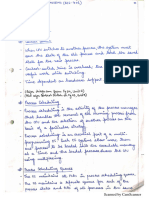 When CPU switches to another process, the system must
save the state of the old process and load the saved
state for the new process.
Context-switch time is overhead, the system
does no useful work while switching.
Time dependent on hardware support.
Process Scheduling
The process scheduling is the activity of the process manager
that handles the removal of the running process from
the CPU and the selection of another process on the
basis of a particular strategy.
Process scheduling is an essential part of a multi
programming OS. Such OS allows more than one
process to be loaded into the executable memory
at a time and the loaded process shares the CPU
using time multiplexing.
Process Scheduling Queues
The OS maintains all PCBs in process scheduling queues.
The OS maintains a separate queue for each of the
process states and PCBs of all processes in the same
Scanned by CamScanner